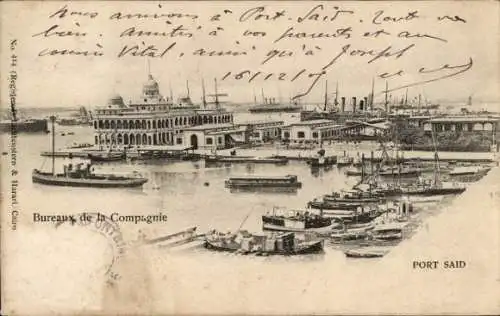 Nous arrivons à Port Said. Tout va
bien. Amitiés à vos parents et au
cousin Vital, ainsi qu'à Joseph
16/12/0
No. 414 (Registered) & Harari, Cairo
Bureaux de la Compagnie
PORT SAID